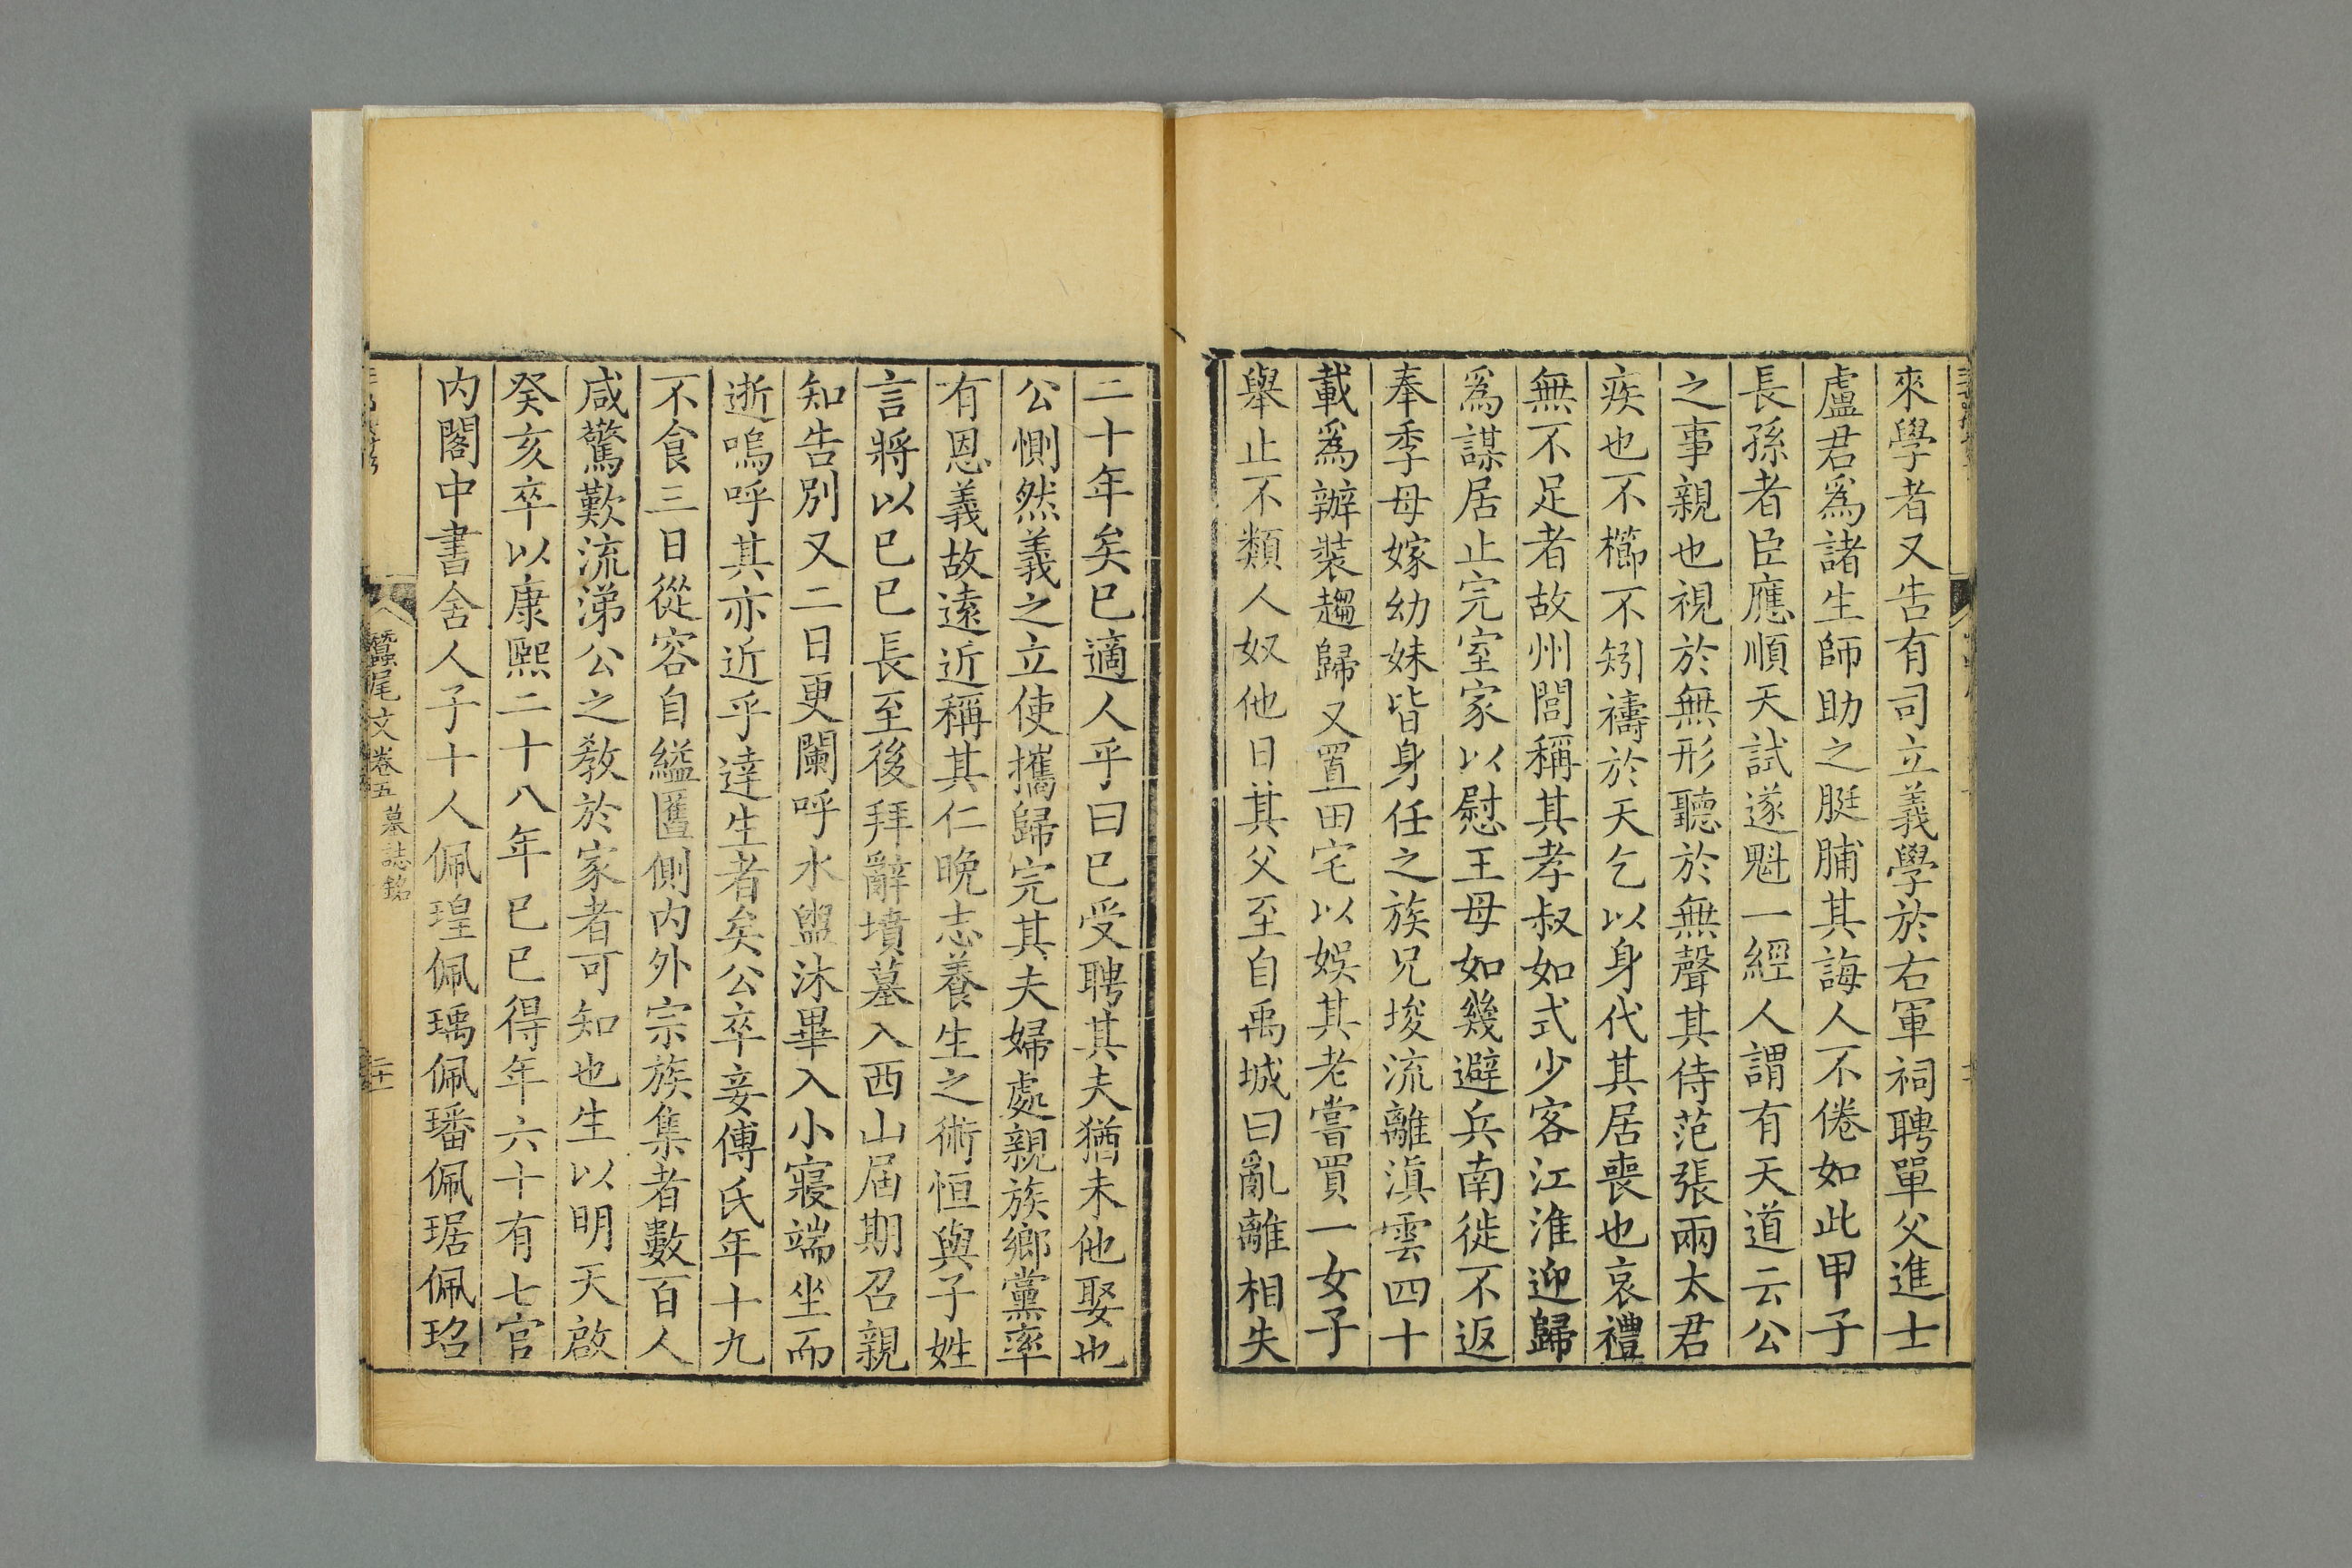 來學者又告有司立義學於右軍祠聘單父進士
盧君爲諸生師助之脡脯其誨人不倦如此甲子
長孫者臣應順天試遂魁一經人謂有天道云公
之事親也視於無形聽於無聲其侍范張兩太君
疾也不櫛不矧禱於天乞以身代其居喪也哀禮
無不足者故州閭稱其孝叔如式少客江淮迎歸
爲謀居止完室家以慰王母如幾避兵南徙不返
奉季母嫁幼妹皆身任之族兄埈流離滇雲四十
載爲辦裝趨歸又置田宅以娛其老嘗買一女子
舉止不類人奴他日其父至自禹城曰亂離相失
二十年矣已適人乎曰已受聘其夫猶未他娶也
公惻然義之立使攜歸完其夫婦處親族鄉黨率
有恩義故遠近稱其仁晚志養生之術恒與子姓
言將以己巳長至後拜辭墳墓入西山屆期召親
知告別又二日更闌呼水盥沐畢入小寢端坐而
逝嗚呼其亦近乎達生者矣公卒妾傅氏年十九
不食三日從容自縊匶側內外宗族集者數百人
咸驚歎流涕公之敎於家者可知也生以明天啟
癸亥卒以康熙二十八年己巳得年六十有七官
内閣中書舍人子十人佩瑝佩瑀佩璠佩琚佩玿
蠶尾文卷五 墓誌銘
二十